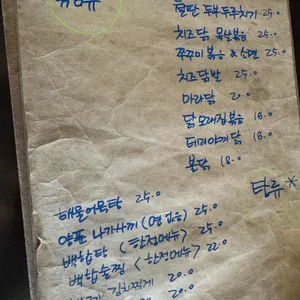 철판 두부두루치기 25.0
치즈닭 목살볶음 25.0
쭈꾸미볶음 & 소면 25.0
치즈닭발 25.0
마라닭 20.0
닭모래집볶음 18.0
데리야끼닭 18.0
불닭 18.0
탕류 *
해물어묵탕 25.0
얼큰 나가사끼 (면 없음) 25.0
백합탕 (한정메뉴) 25.0
백합술찜 (한정메뉴) 22.0
김치찌게 20.0
20.0